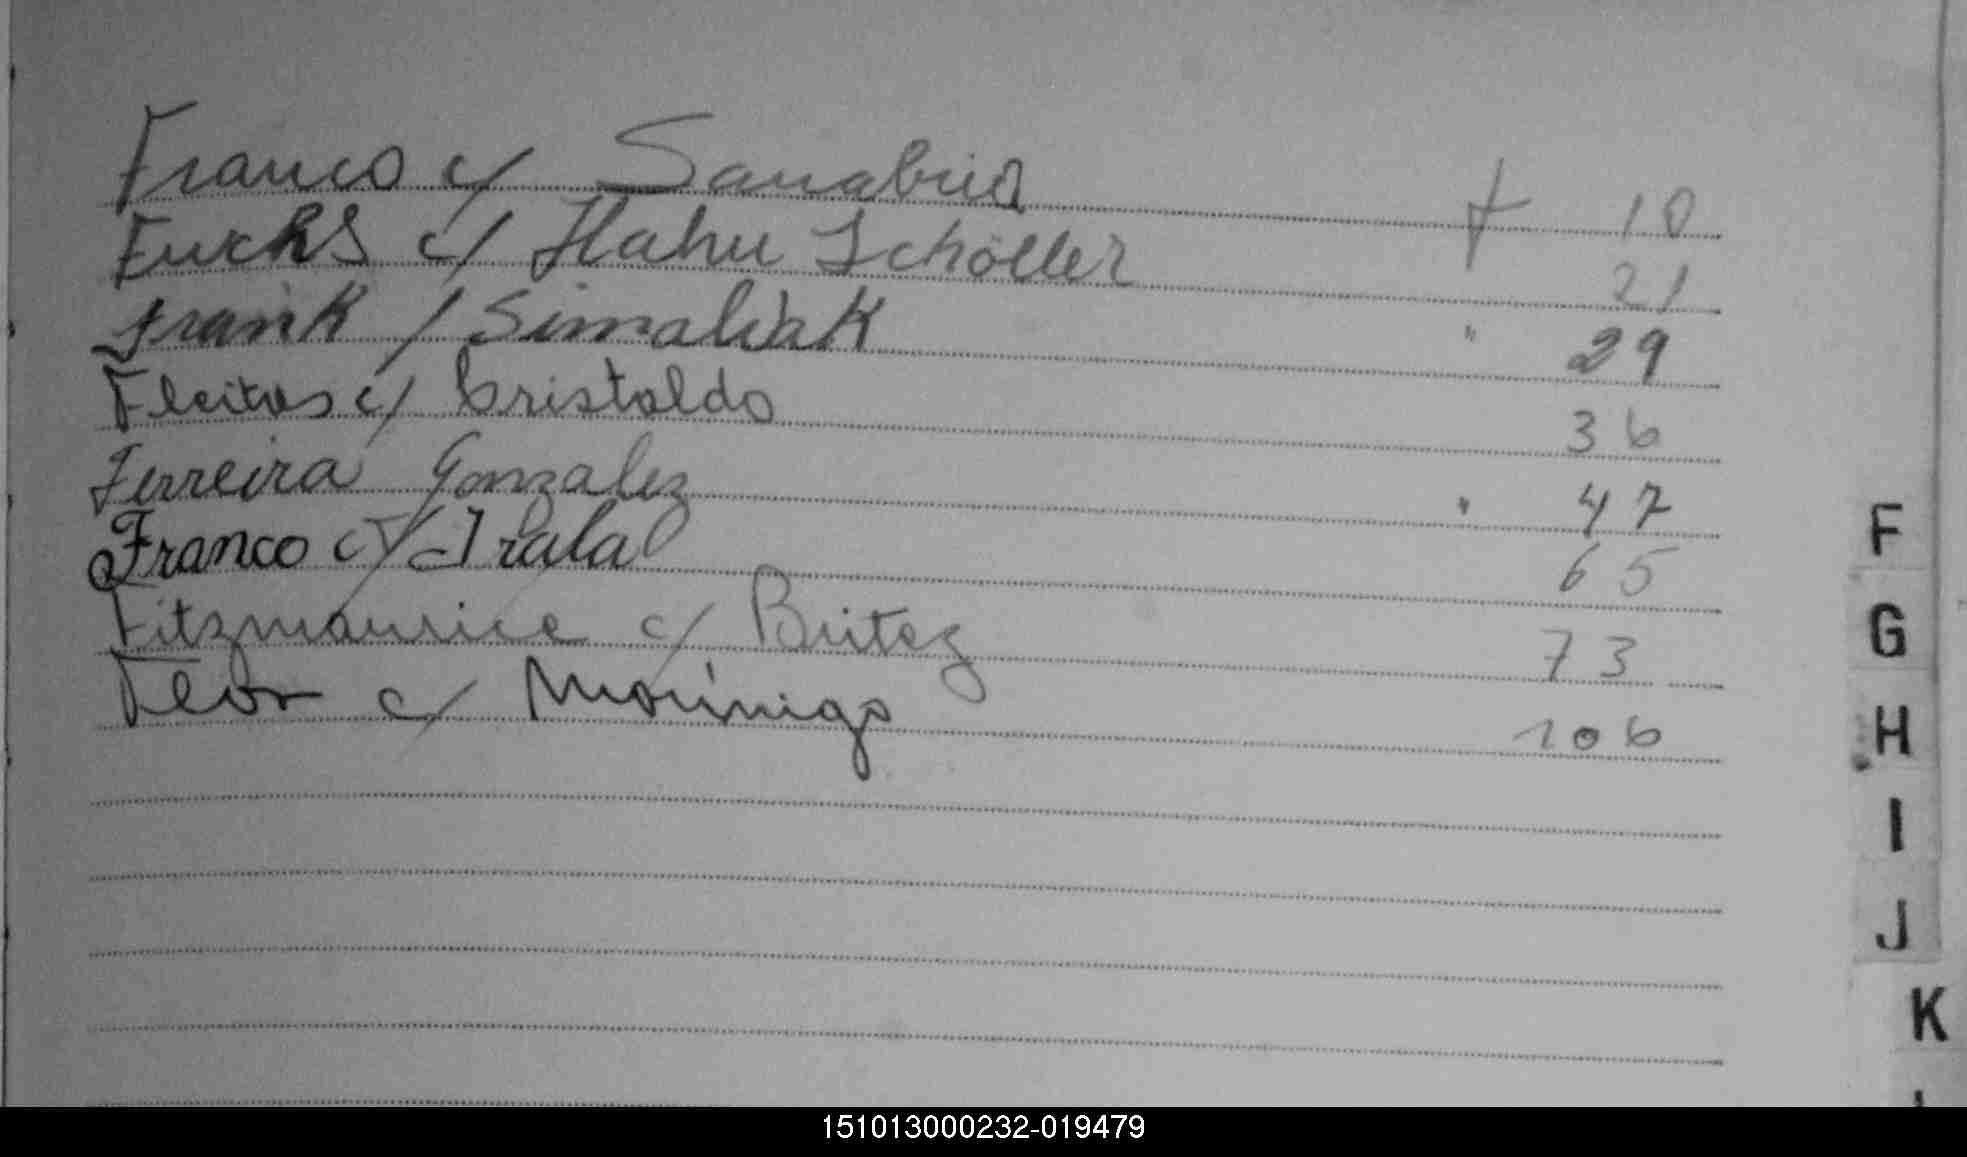 Franco c/ Sanabria f 10
Fuchs c/ Hahn Schöller 21
Frank / Simaliak " 29
Fleitas c/ Cristaldo 36
Ferreira Gonzalez " 47
Franco c/ Irala 65
Fitzmaurice c/ Britez 73
Flor c/ Morinigo 106
F
G
H
I
J
K
151013000232-019479